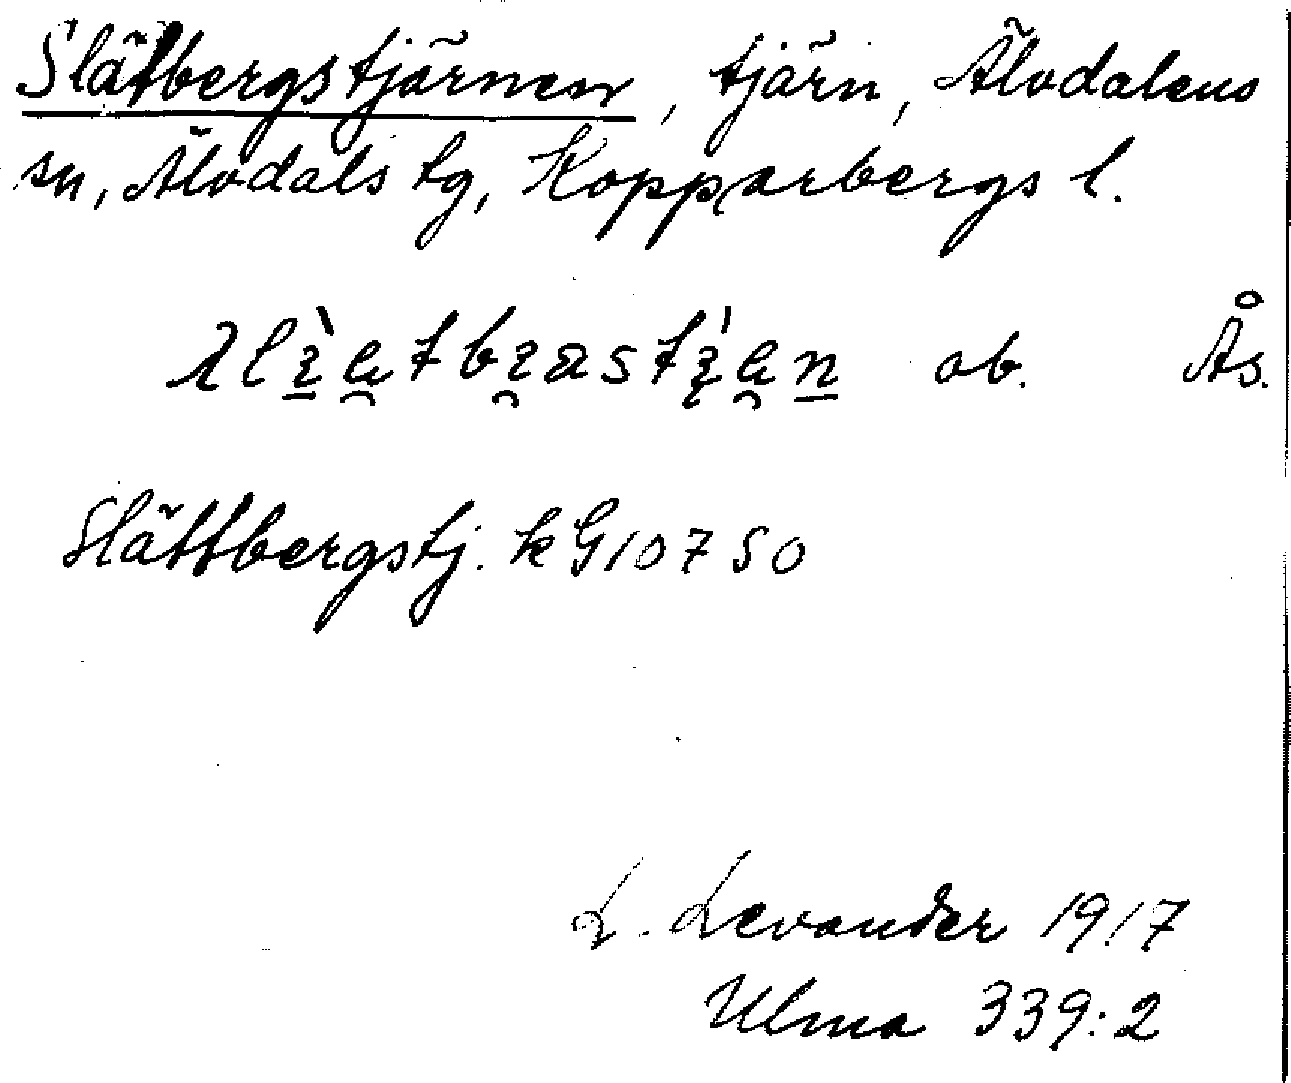 Slätbergstjärnen, tjärn, Älvdalens
sn, Älvdals tg, Kopparbergs l.
ob. Ås.
Slättbergstj. k G 10750
L. Levander 1917
Ulma 339:2